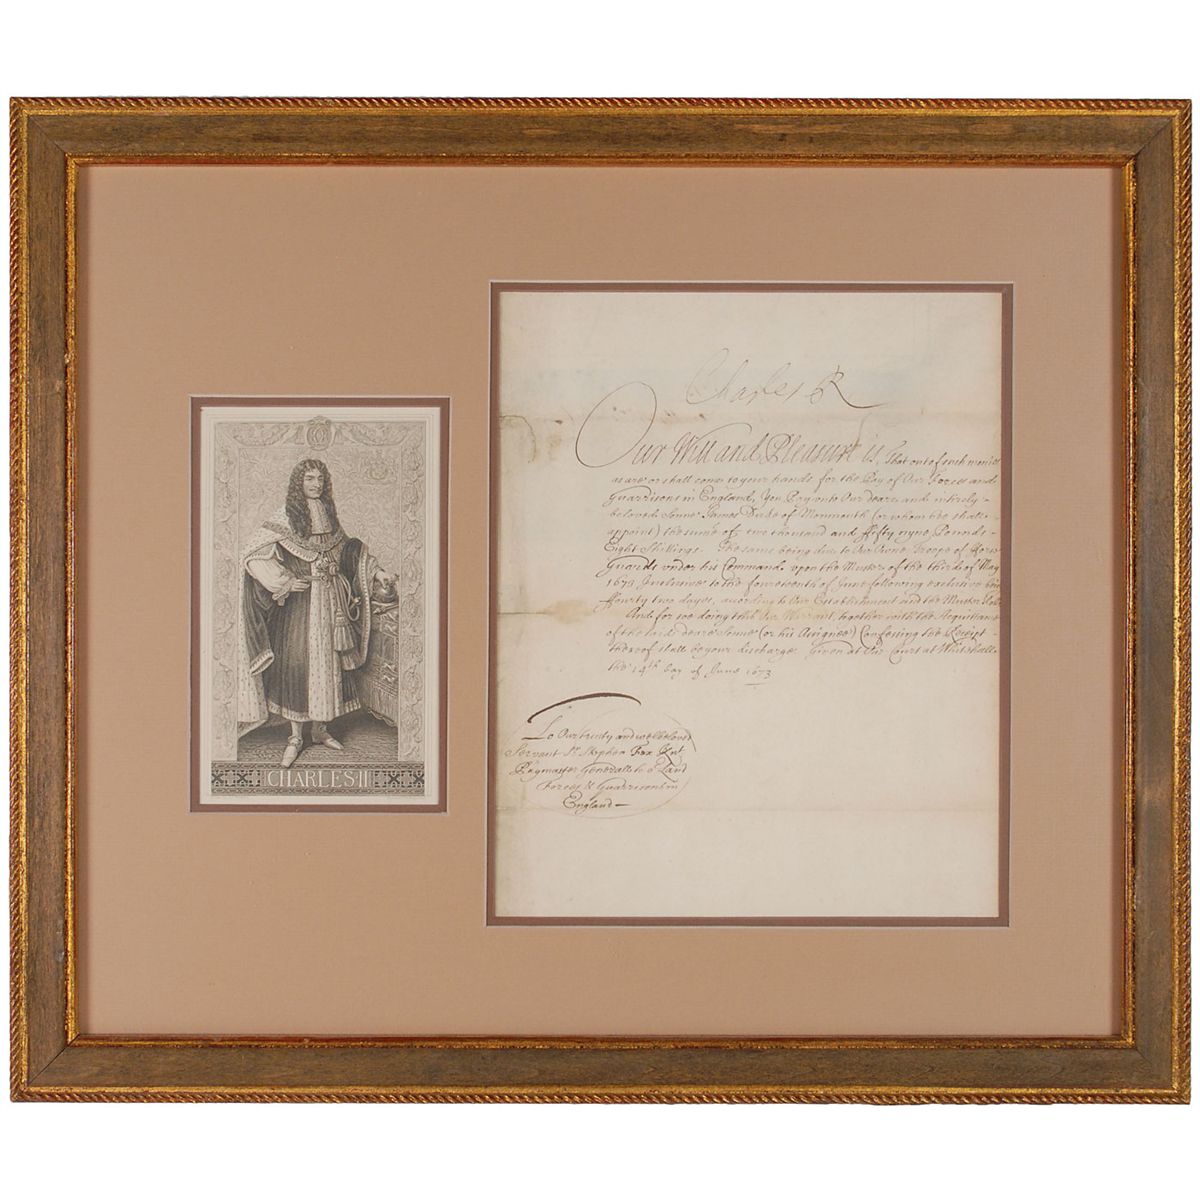 CHARLES·II
Charles R
Our Will and Pleasure is, That out of such monies
as are or shall come to your hands for the Pay of Our Forces and
Guarrisons in England, You Pay unto Our deare and intirely
beloved Sonne James Duke of Monmouth (or whom hee shall
appoint) the summe of two thousand and ffifty nyne Pounds
Eight Shillings. The same being due to Our Owne Troope of Horse
Guards under his Command upon the Muster of the third of May
1673 Inclusive to the fourteenth of June following exclusive being
ffourty two dayes, according to Our Establishment and the Muster Rolls
And for soe doing this Our Warrant, together with the Acquittance
of the said deare Sonne (or his Assignee) Confessing the Receipt
thereof shall be your discharge. Given at Our Court at Whitehall
the 14th day of June 1673
To Our trusty and welbeloved
Servant Sr. Stephen Fox Knt
Paymaster Generall to Land
Forces & Guarrisons in
England